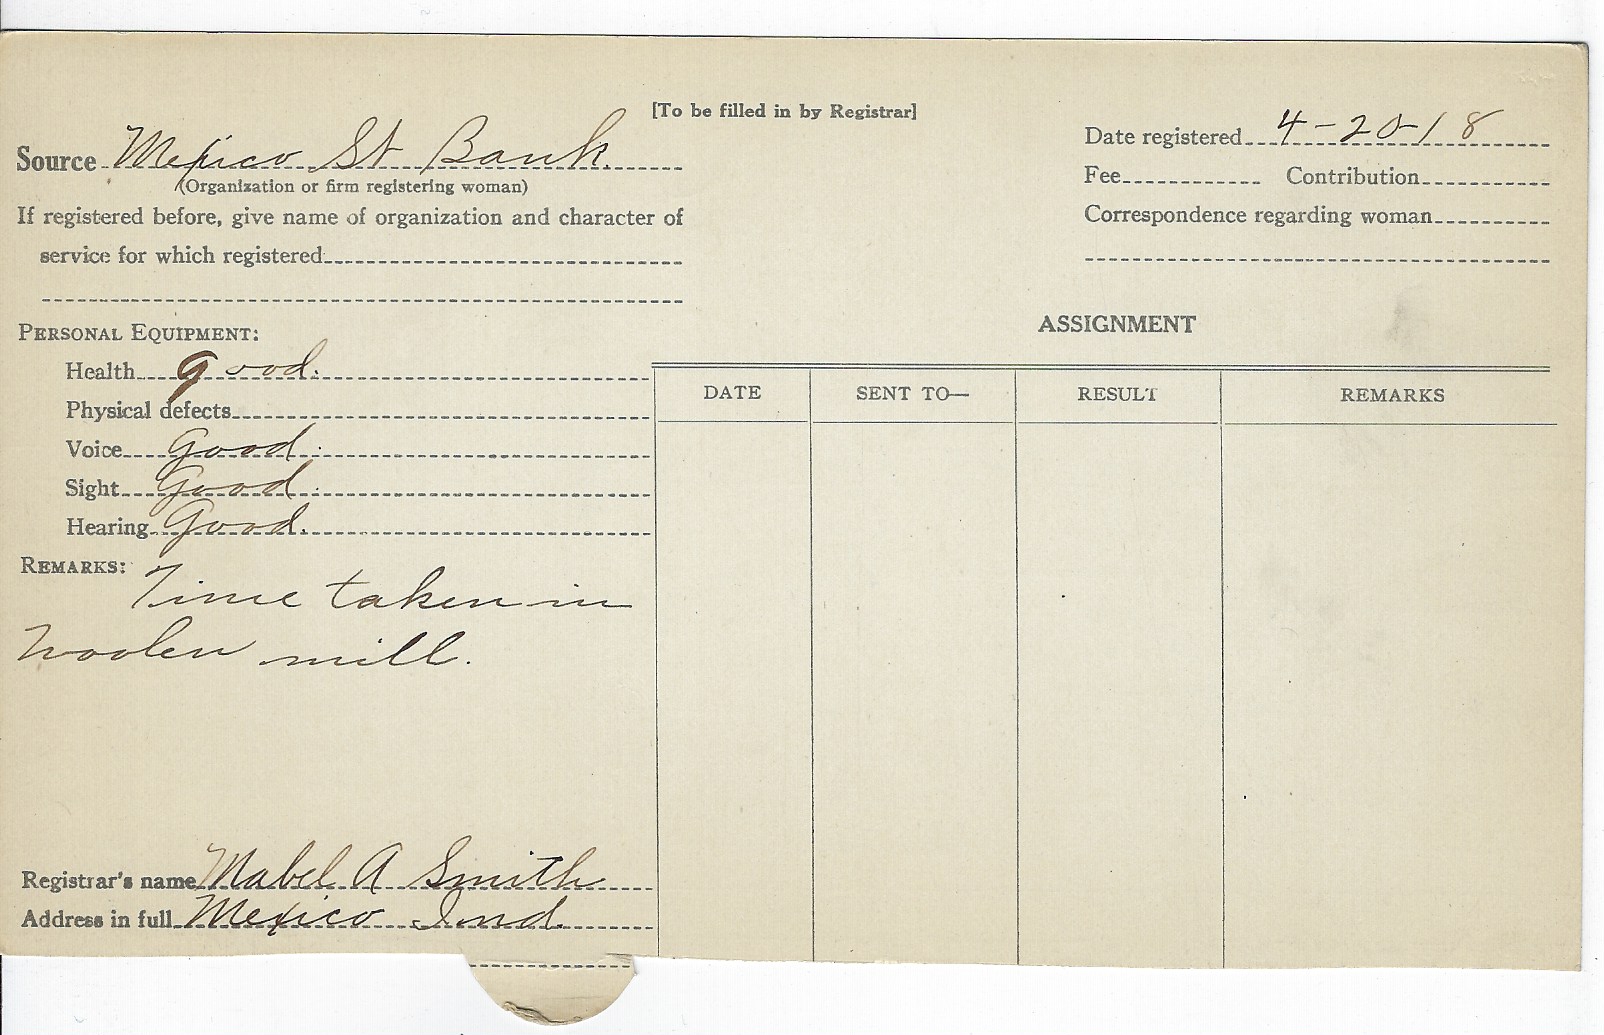 [To be filled in by Registrar]
Source Mexico St Bank.
(Organization or firm registering woman)
If registered before, give name of organization and character of
service for which registered
Date registered 4-20-18
Fee Contribution
Correspondence regarding woman
PERSONAL EQUIPMENT:
Health good.
Physical defects
Voice Good.
Sight Good.
Hearing Good.
REMARKS: Time taken in
Woolen mill.
Registrar's name Mabel A Smith
Address in full Mexico Ind.
ASSIGNMENT
DATE SENT TO— RESULT REMARKS